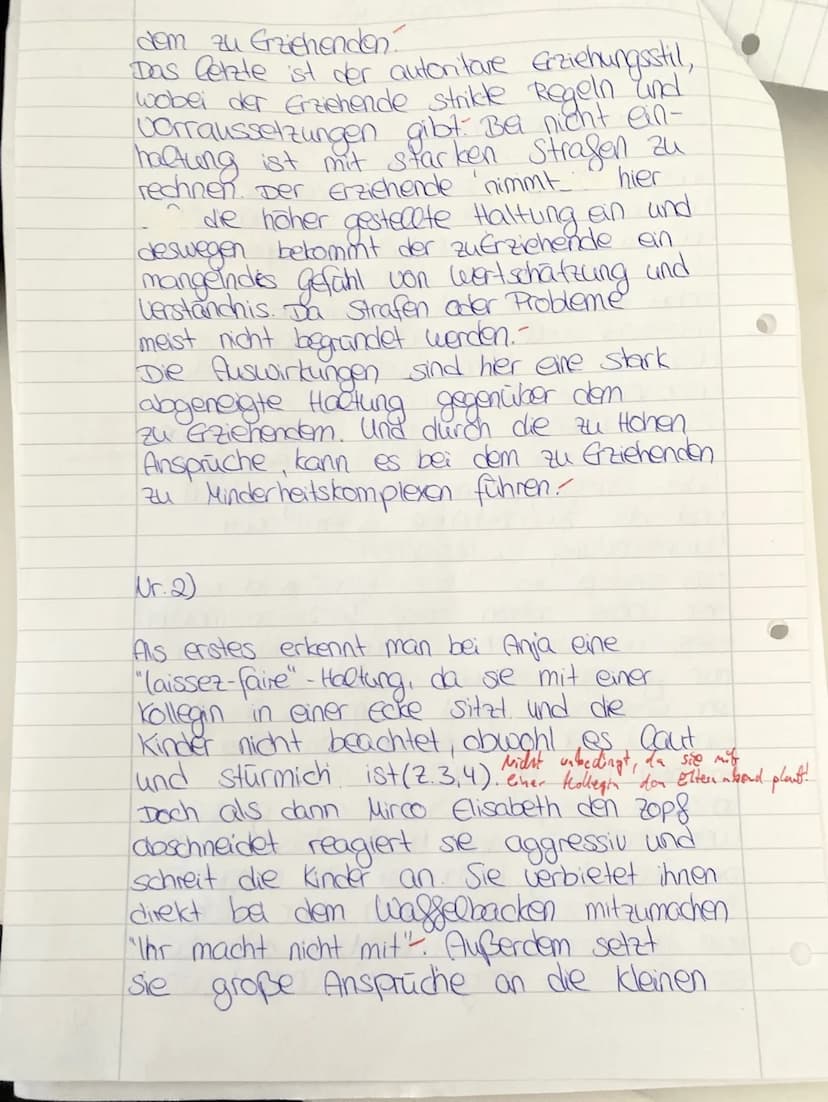 dem zu Erziehenden.
Das letzte ist der autoritäre Erziehungsstil,
wobei der Erziehende strikte Regeln und
Vorraussetzungen gibt. Bei nicht ein-
haltung ist mit starken Strafen zu
rechnen. Der Erziehende nimmt hier
die höher gestellte Haltung ein und
deswegen bekommt der zuErziehende ein
mangelndes Gefühl von Wertschätzung und
Verständnis. Da Strafen oder Probleme
meist nicht begründet werden.
Die Auswirkungen sind hier eine stark
abgeneigte Haltung gegenüber dem
zu Erziehendem. Und durch die zu Hohen
Ansprüche, kann es bei dem zu Erziehenden
zu Minderheitskomplexen führen.
Nr. 2)
Als erstes erkennt man bei Anja eine
"laissez-faire"-Haltung, da sie mit einer
Kollegin in einer Ecke sitzt und die
Kinder nicht beachtet, obwohl es laut
und stürmich ist (Z. 3,4). Nicht unbedingt, da sie mit
einer Kollegin den Elternabend plant!
Doch als dann Mirco Elisabeth den Zopf
abschneidet reagiert sie aggressiv und
schreit die Kinder an. Sie verbietet ihnen
direkt bei dem Waffelbacken mitzumachen
"Ihr macht nicht mit". Außerdem setzt
sie große Ansprüche an die kleinen